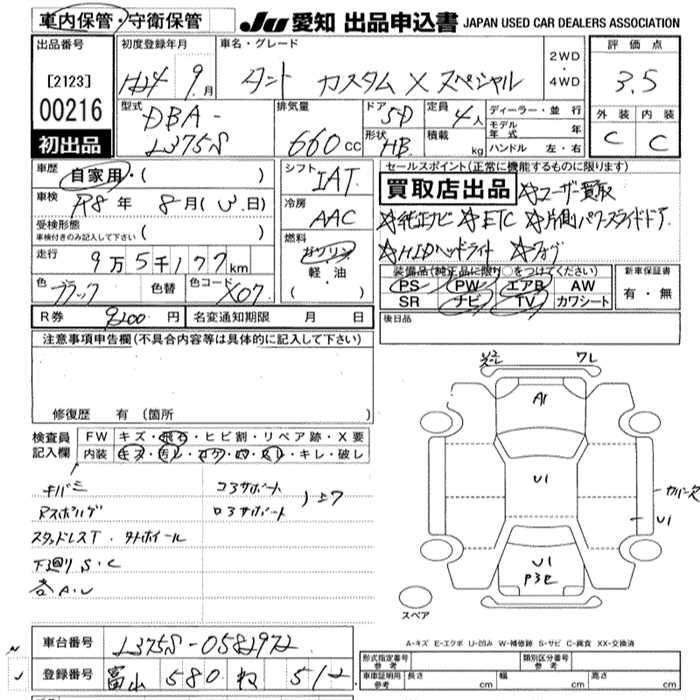 車内保管・守衛保管
JU 愛知 出品申込書 JAPAN USED CAR DEALERS ASSOCIATION
出品番号
[2123]
00216
初出品
初度登録年月
H24年 9月
車名・グレード
タント カスタム X スペシャル
2WD
・
4WD
評価点
3.5
外装 内装
C C
型式
DBA-
L375S
排気量
660cc
ドア 5D
形状 HB
定員 4人
積載 kg
ディーラー・並行
モデル年式 年
ハンドル 左・右
車歴
自家用・( )
車検
R8年 8月( 日)
受検形態
車検付きのみ記入して下さい ( )
走行
9万5千177km
色 ブラック 色替 色コード X07
R券 9200円 名変通知期限 月 日
シフト
IAT
冷房
AAC
燃料
ガソリン
軽・油
・( )
セールスポイント(正常に機能するものに限ります)
買取店出品 ☆ユーザー買取
☆純正ナビ ☆ETC ☆片側パワースライドドア
☆HIDヘッドライト ☆フォグ
装備品(純正品に限り○をつけてください)
PS PW エアB AW
SR ナビ TV カワシート
新車保証書
有・無
後日品
注意事項申告欄(不具合内容等は具体的に記入して下さい)
修復歴 有(箇所
検査員記入欄
FW キズ・飛石・ヒビ割・リペア跡・X要
内装 キズ・汚レ・コゲ・穴・スレ・キレ・破レ
キバミ
コアサポート
スタッドレスT・タイヤホイール
下廻りS・C
各A・U
ワレ
A1
U1
U1
U1
スペア
A-キズ E-エクボ U-凹み W-補修跡 S-サビ C-腐食 XX-交換済
車台番号 L375S-0582972
登録番号 富山 580 ね 512
形式指定番号 参考
類別区分番号 参考
車庫証明用 参考 長さ cm 幅 cm 高さ cm